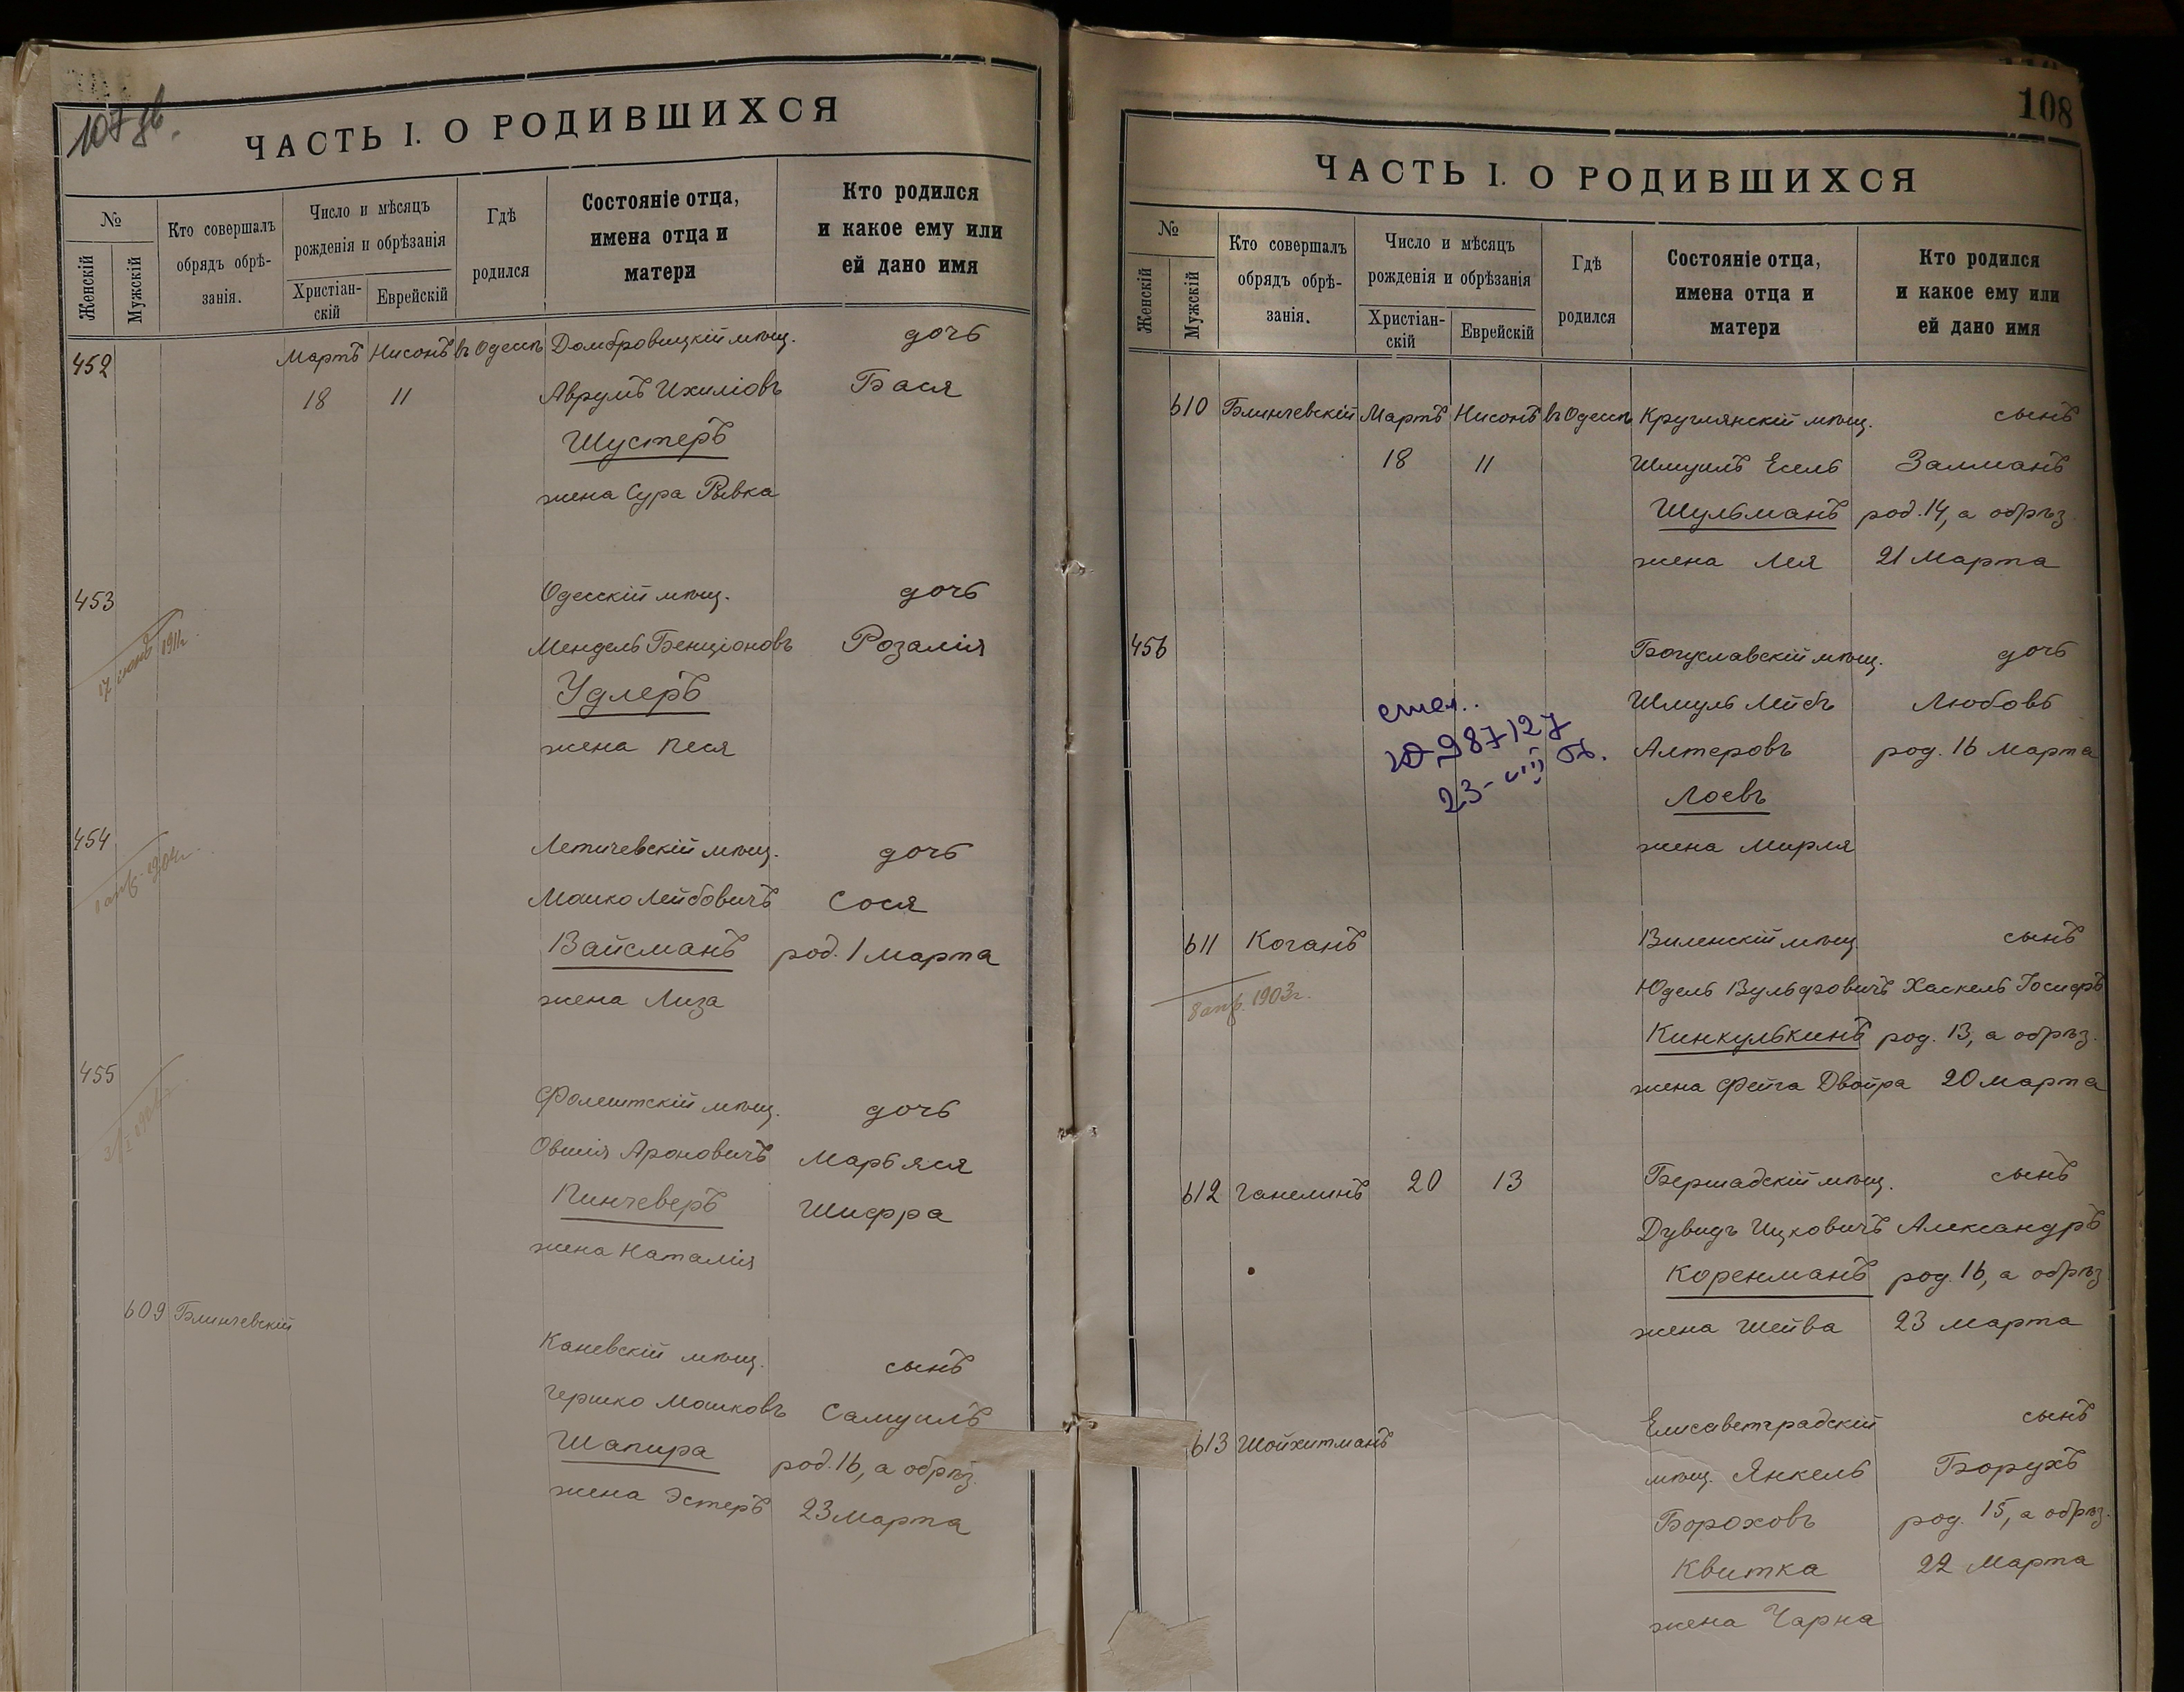 107 об.
ЧАСТЬ I. О РОДИВШИХСЯ
№
Женскій
Мужскій
Кто совершалъ
обрядъ обрѣ-
занія.
Число и мѣсяцъ
рожденія и обрѣзанія
Христіан-
скій
Еврейскій
Гдѣ
родился
Состояніе отца,
имена отца и
матери
Кто родился
и какое ему или
ей дано имя
452 Мартъ Нисонъ въ Одессѣ Домбровицкій мѣщ. дочь
18 11 Аврумъ Ихиліовъ Бася
Шустеръ
жена Сура Рывка
453 Одесскій мѣщ. дочь
17 1911г.
Мендель Бенціоновъ Розалія
Удлеръ
жена Песя
454 Летичевскій мѣщ. дочь
Мошко Лейбовичъ Сося
Вайсманъ род. 1 Марта
жена Лиза
455 Фалештскій мѣщ. дочь
Овшія Ароновичъ Марьяся
Пинчеверъ Шифра
жена Наталія
609 Блинчевскій Каневскій мѣщ. сынъ
Гершко Мошковъ Самуилъ
Шапира род. 16, а обрѣз.
жена Эстеръ 23 Марта
108
ЧАСТЬ I. О РОДИВШИХСЯ
№
Женскій
Мужскій
Кто совершалъ
обрядъ обрѣ-
занія.
Число и мѣсяцъ
рожденія и обрѣзанія
Христіан-
скій
Еврейскій
Гдѣ
родился
Состояніе отца,
имена отца и
матери
Кто родился
и какое ему или
ей дано имя
610 Блинчевскій Мартъ Нисонъ въ Одессѣ Круглянскій мѣщ. сынъ
18 11 Шмуилъ Есель Залманъ
Шульманъ род. 14, а обрѣз.
жена Лея 21 Марта
456 Богуславскій мѣщ. дочь
Шмуль Лейбъ Любовь
Алтеровъ род. 16 Марта
Лоевъ
жена Мирля
987127
23-VIII
611 Коганъ Виленскій мѣщ. сынъ
8 апр. 1903г.
Юдель Вульфовичъ Хаскель Іосифъ
Кинкулькинъ род. 13, а обрѣз.
жена Фейга Двойра 20 Марта
612 Ганелинъ 20 13 Бершадскій мѣщ. сынъ
Дувидъ Ицковичъ Александръ
Коренманъ род. 16, а обрѣз.
жена Шейва 23 марта
613 Шойхитманъ Елисаветградскій сынъ
мѣщ. Янкель Борухъ
Бороховъ род. 15, а обрѣз.
Квитка 22 Марта
жена Чарна